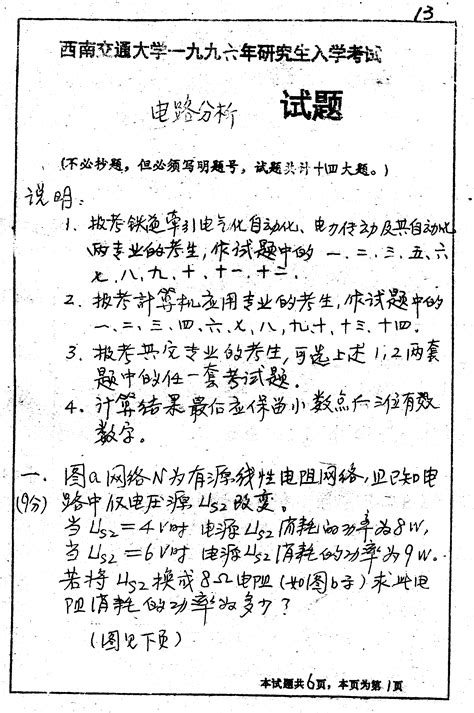 13
西南交通大学一九九六年研究生入学考试
电路分析 试题
(不必抄题，但必须写明题号，试题共计十四大题。)
说明：
1、报考铁道牵引电气化自动化、电力传动及其自动化
两专业的考生，作试题中的一、二、三、五、六
七、八、九、十、十一、十二、
2、报考計算机应用专业的考生，作试题中的
一、二、三、四、六、七、八、九、十、十三、十四.
3、报考其它专业的考生，可选上述1,2两套
题中的任一套考试题。
4、计算结果最后应保留小数点后三位有效
数字。
一、图a网络N为有源线性电阻网络，且已知电
(9分) 路中仅电压源Us2改变。
当Us2=4V时 电源Us2消耗的功率为8W,
当Us2=6V时 电源Us2消耗的功率为9W.
若将Us2换成8Ω电阻(如图b示)求此电
阻消耗的功率为多少？
(图见下页)
本试题共6页，本页为第1页